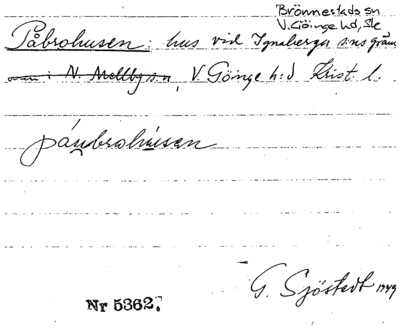 Brönnestads sn
V. Göinge hd, Sk
Påbrohusen: hus vid Ignaberga s:ns gräns
i N. Mellby s:n, V. Göinge h:d Krist. l.
påubrohúsen
G. Sjöstedt
Nr 5362.